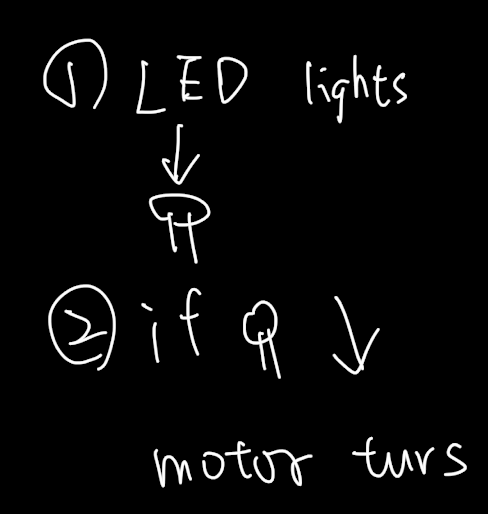 ① LED lights
② if
motor turs